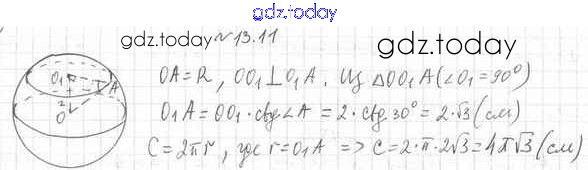 gdz.today
gdz.today №13.11
gdz.today
OA=R, OO₁⊥O₁A. Из △OO₁A (∠O₁=90°)
O₁A = OO₁·ctg∠A = 2·ctg30° = 2·√3 (см)
C=2πr, где r=O₁A => C=2·π·2√3=4π√3 (см)
O₁
A
2
O